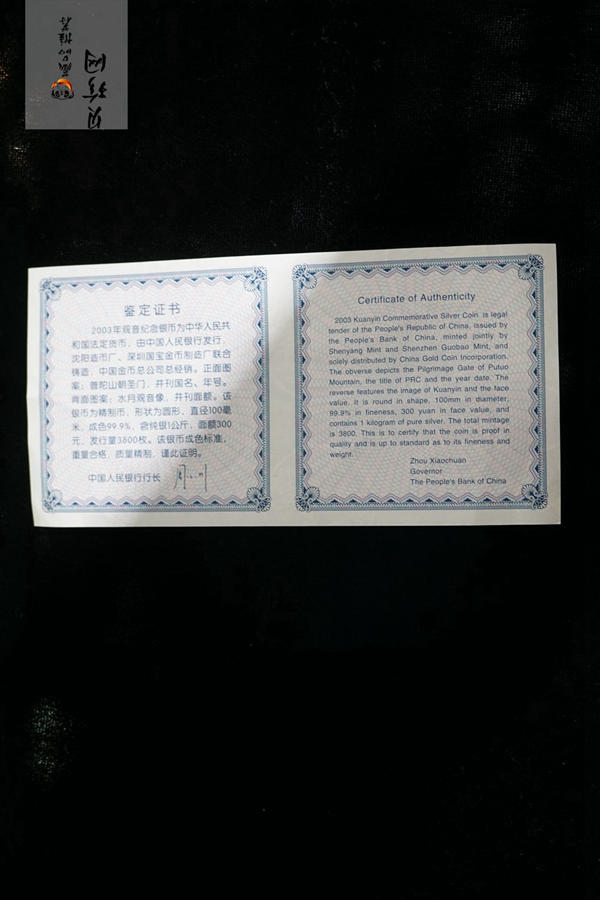 贝珍网
藏品推荐
鉴定证书
2003年观音纪念银币为中华人民共
和国法定货币，由中国人民银行发行，
沈阳造币厂、深圳国宝金币制造厂联合
铸造，中国金币总公司总经销。正面图
案：普陀山朝圣门，并刊国名、年号。
背面图案：水月观音像，并刊面额。该
银币为精制币，形状为圆形，直径100毫
米，成色99.9%，含纯银1公斤，面额300
元，发行量3800枚。该银币成色标准，
重量合格，质量精制，谨此证明。
中国人民银行行长
Certificate of Authenticity
2003 Kuanyin Commemorative Silver Coin is legal
tender of the People's Republic of China, issued by
the People's Bank of China, minted jointly by
Shenyang Mint and Shenzhen Guobao Mint, and
solely distributed by China Gold Coin Incorporation.
The obverse depicts the Pilgrimage Gate of Putuo
Mountain, the title of PRC and the year date. The
reverse features the image of Kuanyin and the face
value. It is round in shape, 100mm in diameter,
99.9% in fineness, 300 yuan in face value, and
contains 1 kilogram of pure silver. The total mintage
is 3800. This is to certify that the coin is proof in
quality and is up to standard as to its fineness and
weight.
Zhou Xiaochuan
Governor
The People's Bank of China